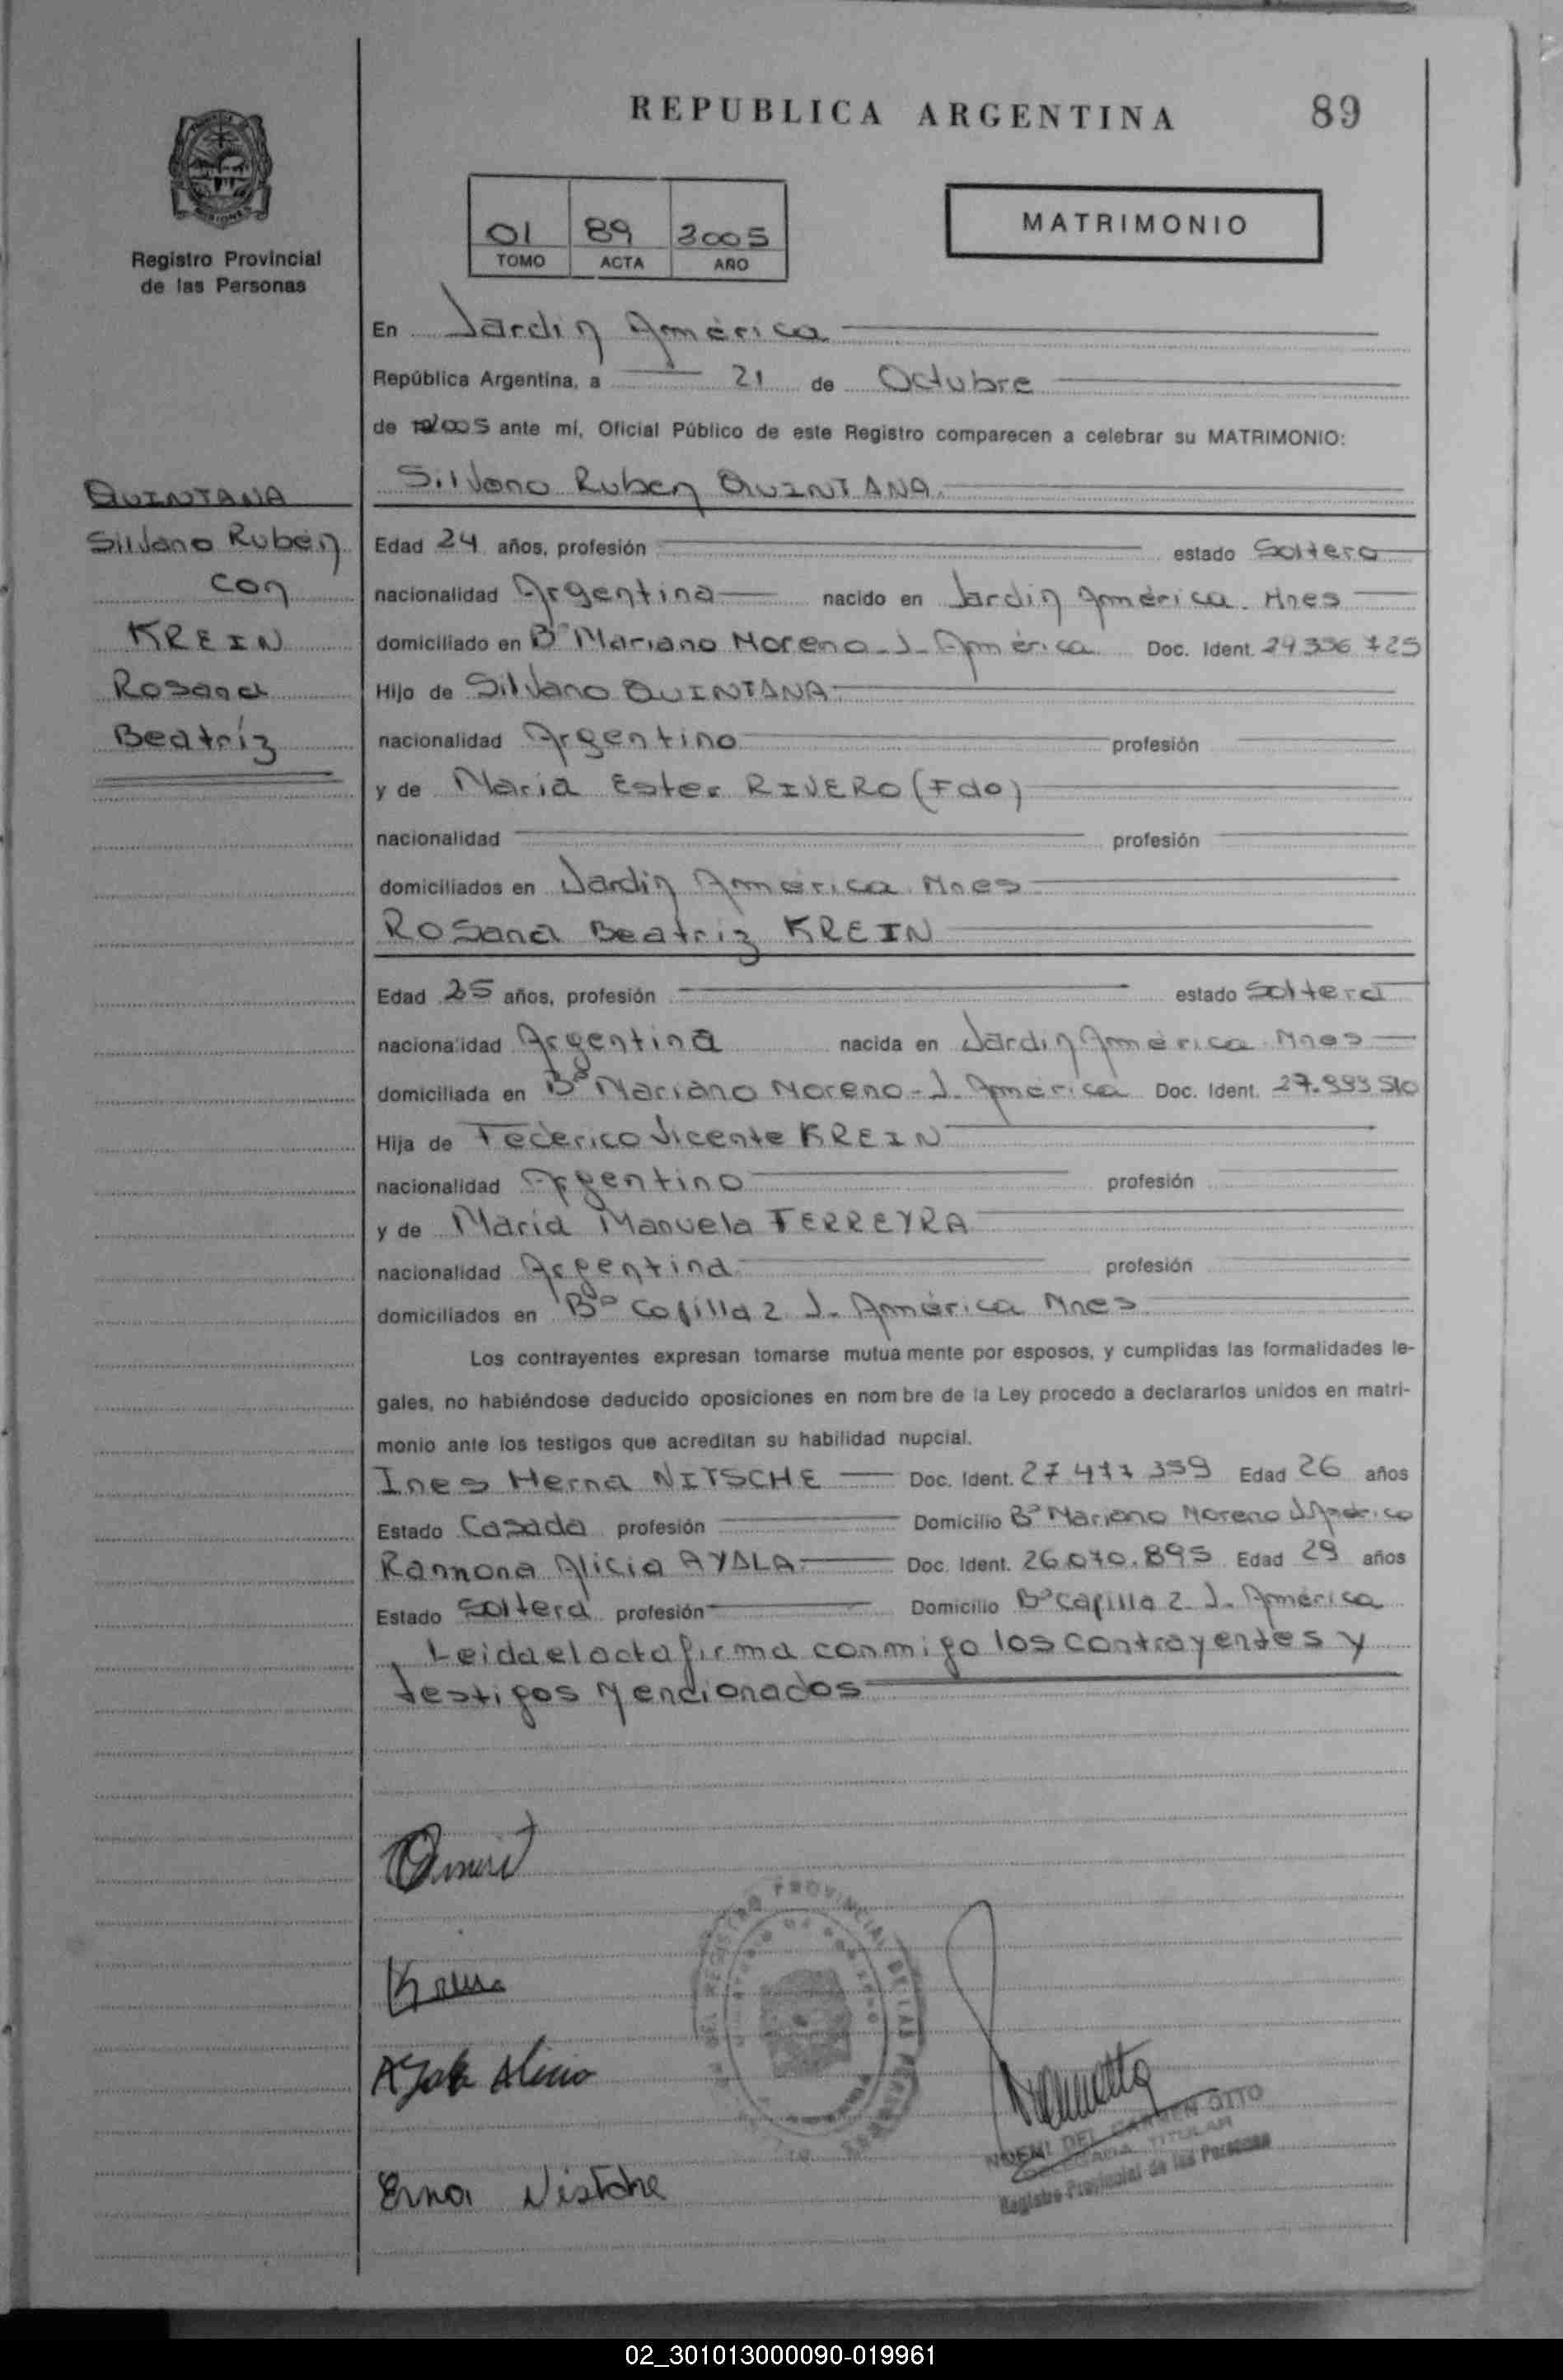 REPUBLICA ARGENTINA
89
Registro Provincial
de las Personas
01 89 2005
TOMO ACTA AÑO
MATRIMONIO
En Jardin América
República Argentina, a 21 de Octubre
de 2005 ante mí, Oficial Público de este Registro comparecen a celebrar su MATRIMONIO:
QUINTANA
Silvano Rubén
con
KREIN
Rosana
Beatríz
Silvano Ruben QUINTANA
Edad 24 años, profesión estado Soltero
nacionalidad Argentina nacido en Jardin América. Mnes
domiciliado en Bº Mariano Moreno - J - América Doc. Ident.
Hijo de Silvano QUINTANA
nacionalidad Argentino profesión
y de María Ester RIVERO (Fdo)
nacionalidad profesión
domiciliados en Jardin América. Mnes
Rosana Beatriz KREIN
Edad 25 años, profesión estado Soltera
nacionalidad Argentina nacida en Jardin América. Mnes
domiciliada en Bº Mariano Moreno - J. América Doc. Ident.
Hija de Federico Vicente KREIN
nacionalidad Argentino profesión
y de María Manuela FERREYRA
nacionalidad Argentina profesión
domiciliados en Bº Capilla 2 J. América Mnes
Los contrayentes expresan tomarse mutua mente por esposos, y cumplidas las formalidades le-
gales, no habiéndose deducido oposiciones en nom bre de la Ley procedo a declararlos unidos en matri-
monio ante los testigos que acreditan su habilidad nupcial.
Ines Herna NITSCHE Doc. Ident. Edad 26 años
Estado Casada profesión Domicilio Bº Mariano Moreno J América
Ramona Alicia AYALA Doc. Ident. 26.070.895 Edad 29 años
Estado Soltera profesión Domicilio Bº Capilla 2 J. América
Leida el acta firma conmigo los contrayentes y
testigos mencionados
Ayala Alicia
Erna Nistche
REGISTRO PROVINCIAL DE LAS PERSONAS
NOEMI DEL CARMEN OTTO
DELEGADA TITULAR
Registro Provincial de las Personas
02_301013000090-019961